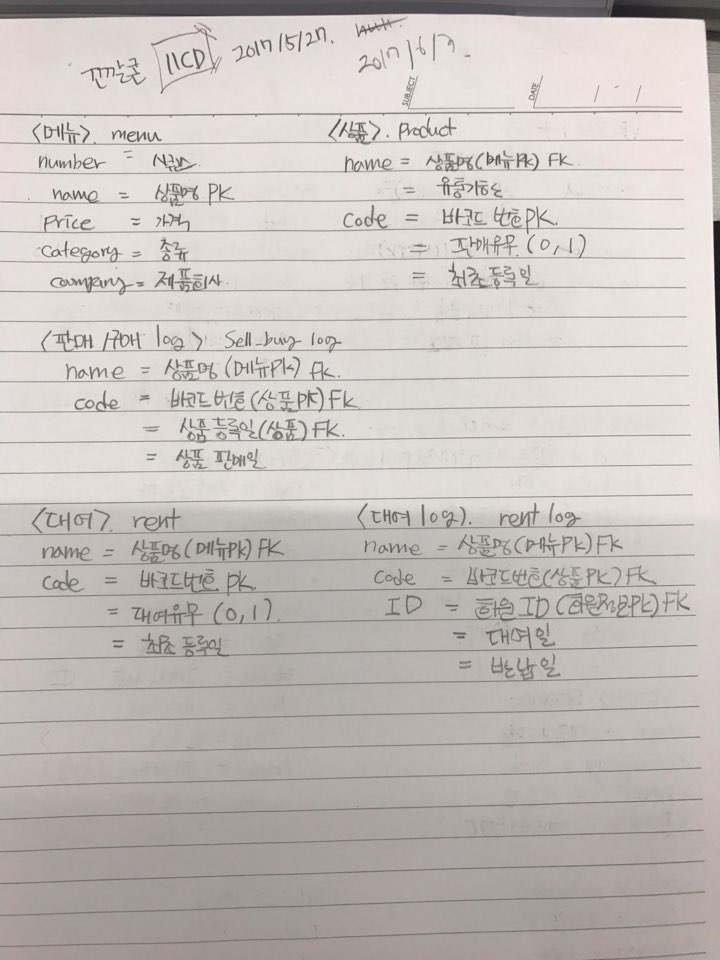 꼬깔콘 11CD 2017/5/27.
2017/6/7.
SUBJECT
DATE / · /
<메뉴>. menu
number = 시퀀스
name = 상품명 PK
Price = 가격
Category = 종류
company = 제품회사
<상품>. Product
name = 상품명(메뉴PK) FK
= 유통기한
code = 바코드 번호 PK.
= 판매유무 (0,1)
= 최초등록일
<판매/구매 log>. Sell_buy log
name = 상품명(메뉴PK) FK.
code = 바코드번호(상품PK) FK
= 상품등록일(상품) FK.
= 상품 판매일
<대여>. rent
name = 상품명(메뉴PK) FK
code = 바코드번호 PK.
= 대여유무 (0,1)
= 최초 등록일
<대여 log>. rent log
name = 상품명(메뉴PK) FK
code = 바코드번호(상품PK) FK
ID = 회원 ID (회원정보PK) FK
= 대여일
= 반납일